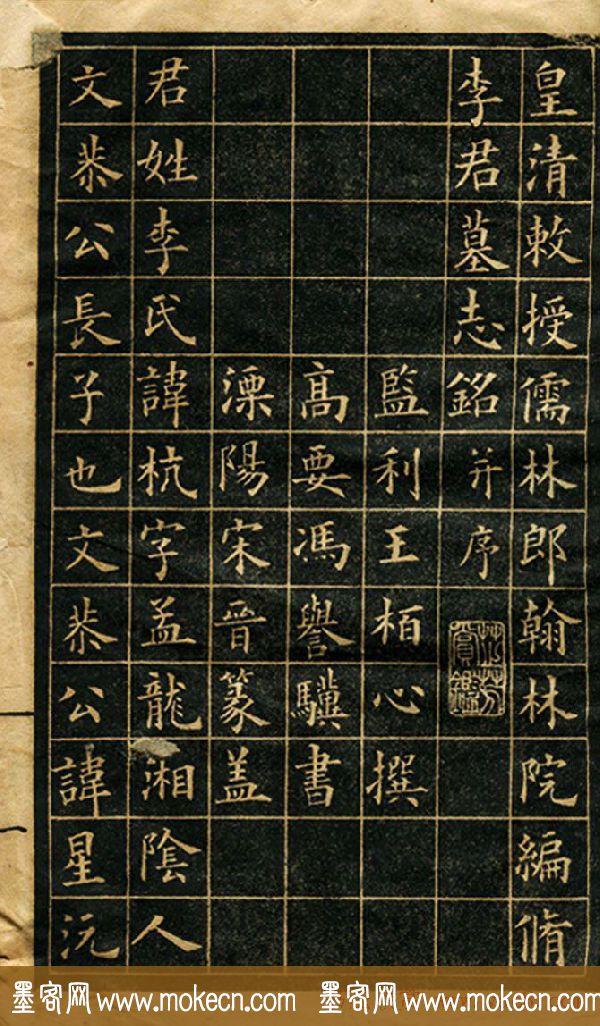 皇清敕授儒林郎翰林院編脩
李君墓志銘并序
監利王栢心撰
高要馮譽驥書
溧陽宋晉篆盖
君姓李氏諱杭字孟龍湘陰人
文恭公長子也文恭公諱星沅
墨客网 www.mokecn.com 墨客网 www.mokecn.com